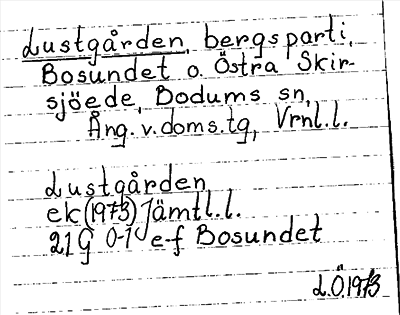 Lustgården, bergsparti,
Bosundet o. Östra Skir-
sjöede, Bodums sn,
Ång.v.doms.tg, Vrnl.l.
Lustgården
ek(1973) Jämtl.l.
21G 0-1 e-f Bosundet
L.Ö.1973